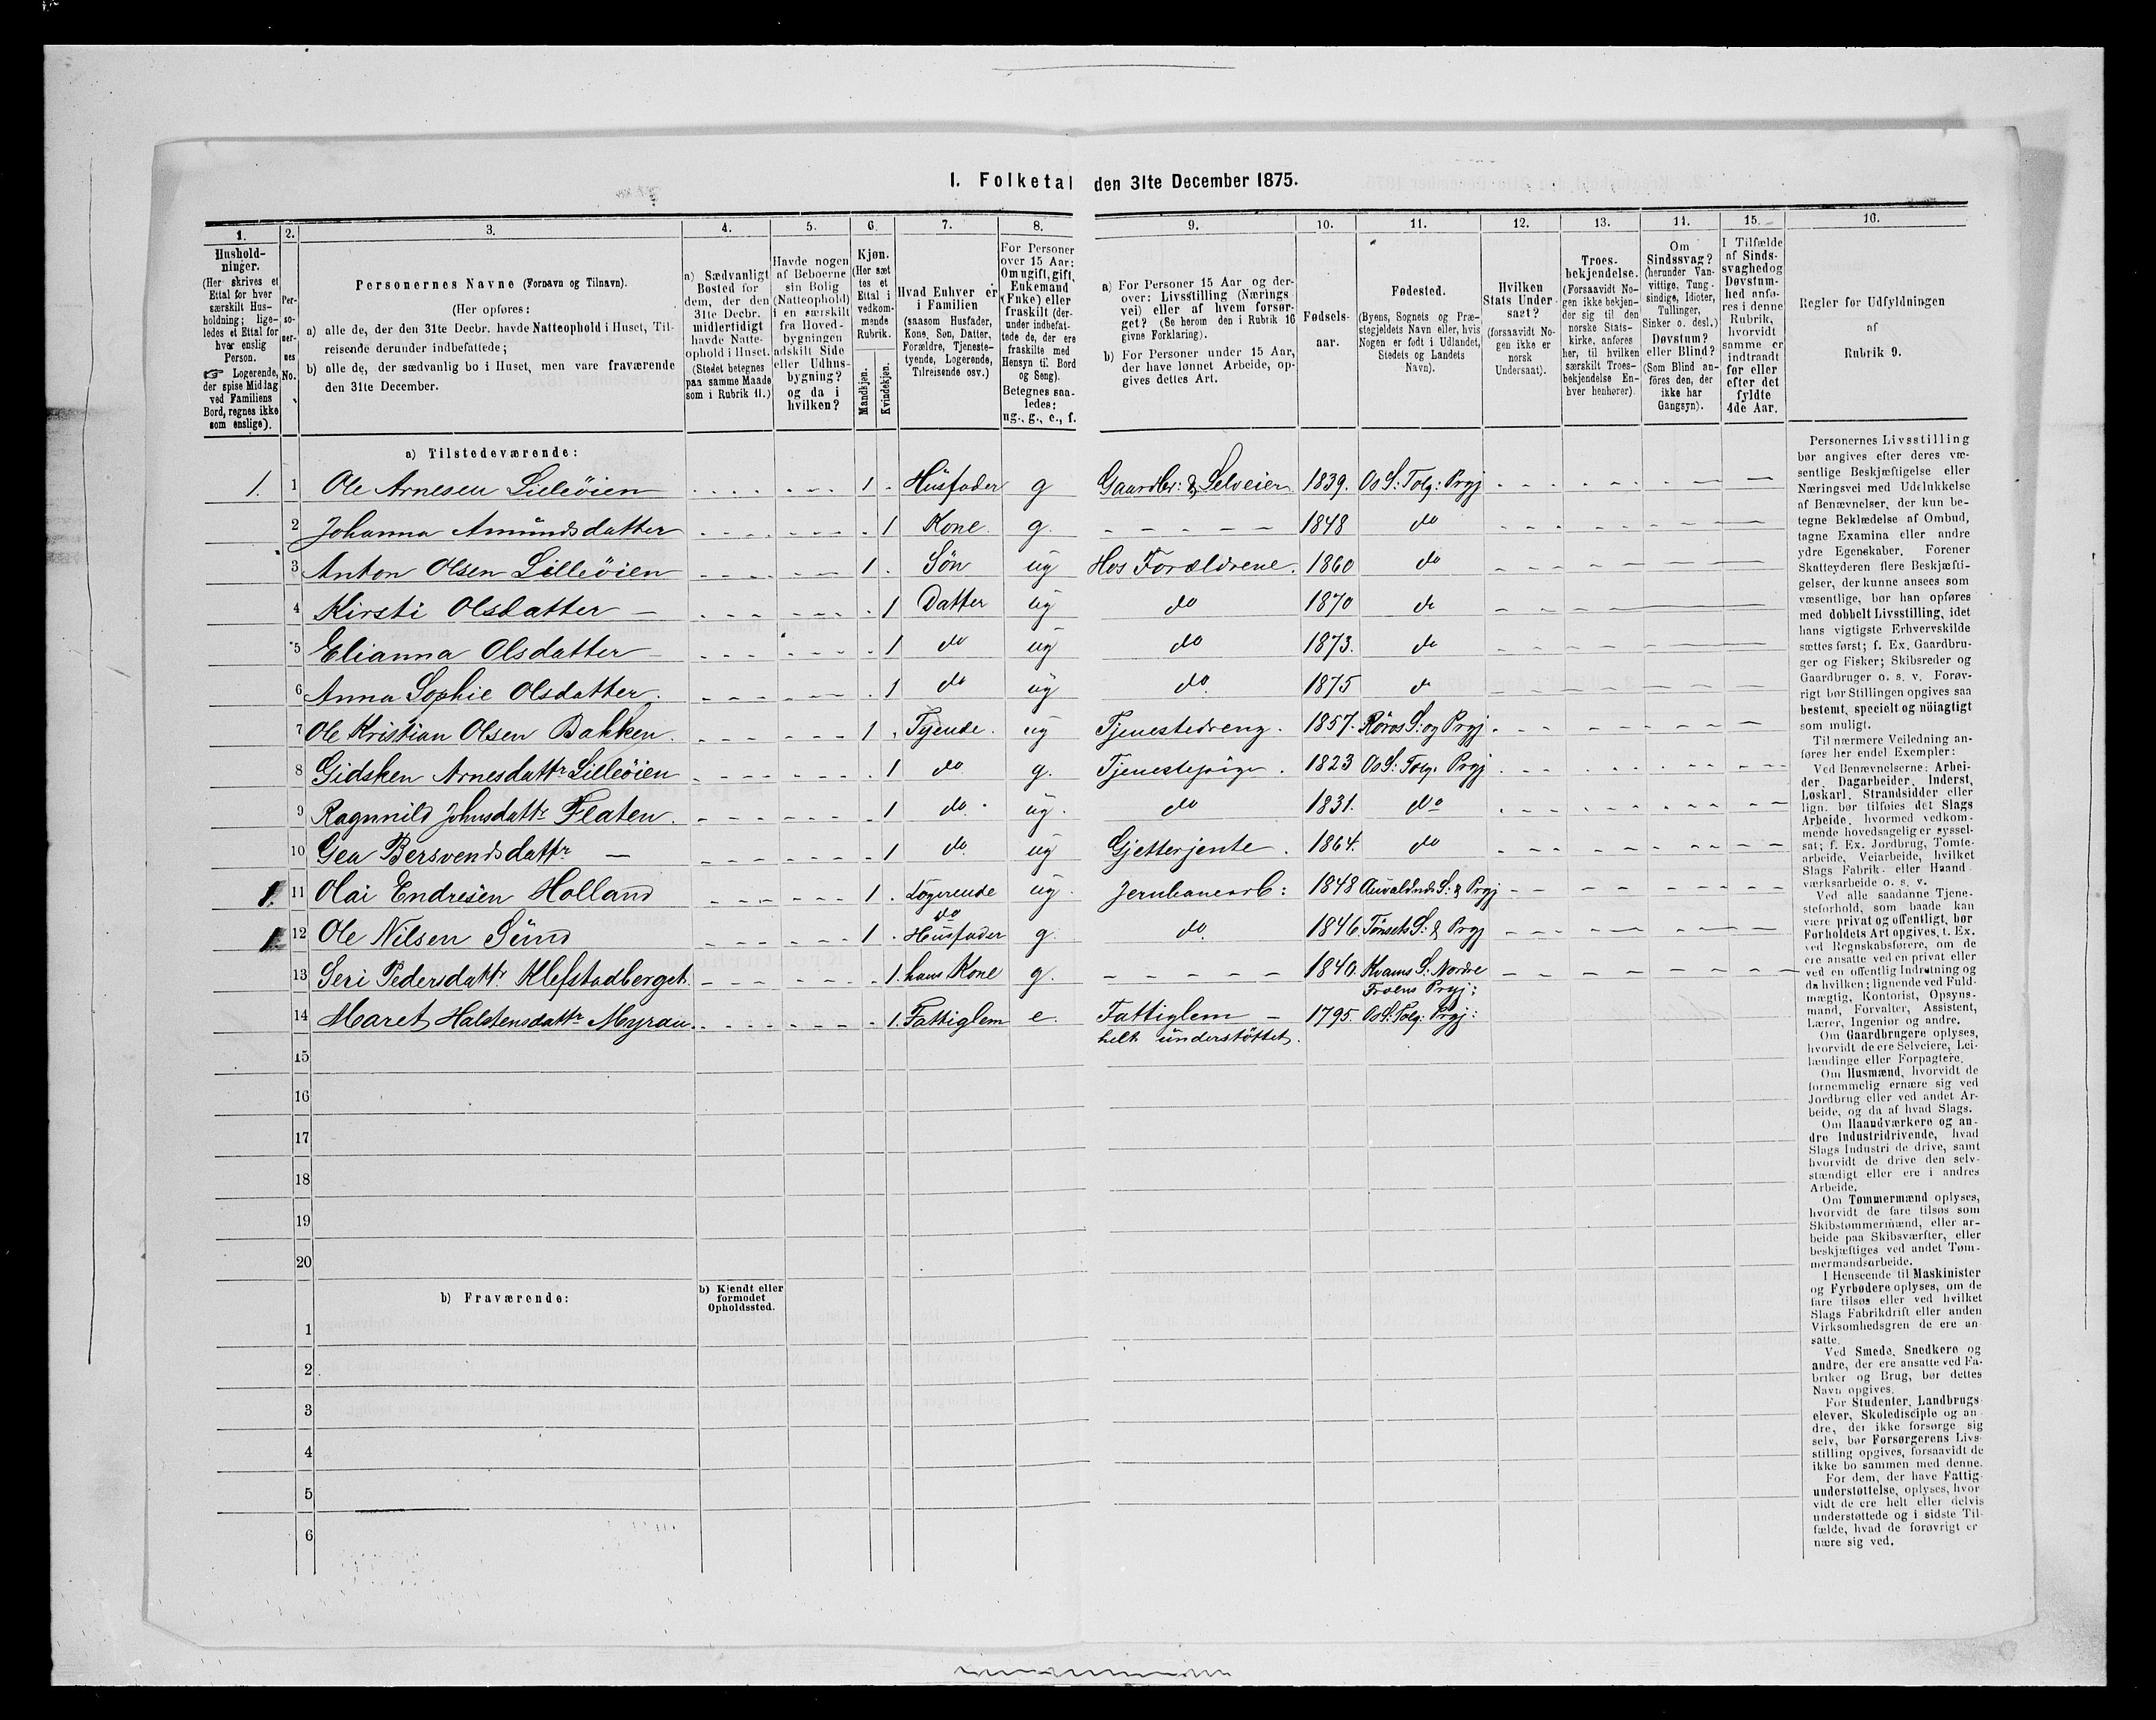 I. Folketal den 31te December 1875.
1. 2. 3. 4. 5. 6. 7. 8. 9. 10. 11. 12. 13. 14. 15. 16.
Hushold-
ninger.
(Her skrives et
Ettal for hver
særskilt Hus-
holdning; lige-
ledes et Ettal for
hver enslig
Person.
☞ Logerende,
der spise Middag
ved Familiens
Bord, regnes ikke
som enslige).
Per-
so-
ner-
nes
No.
Personernes Navne (Fornavn og Tilnavn).
(Her opføres:
a) alle de, der den 31te Decbr. havde Natteophold i Huset, Til-
reisende derunder indbefattede;
b) alle de, der sædvanlig bo i Huset, men vare fraværende
den 31te December.
a) Sædvanligt
Bosted for
dem, der den
31te Decbr.
midlertidigt
havde Natte-
ophold i Huset.
(Stedet betegnes
paa samme Maade
som i Rubrik 11.)
Havde nogen
af Beboerne
sin Bolig
(Natteophold)
i en særskilt
fra Hoved-
bygningen
adskilt Side
eller Udhus-
bygning?
og da i
hvilken?
Kjøn.
(Her sæt
tes et
Ettal i
vedkom-
mende
Rubrik.
Mandkjøn.
Kvindekjøn.
Hvad Enhver er
i Familien
(saasom Husfader,
Kone, Søn, Datter,
Forældre, Tjeneste-
tyende, Logerende,
Tilreisende osv.)
For Personer
over 15 Aar:
Om ugift, gift,
Enkemand
(Enke) eller
fraskilt (der-
under indbefat-
tede de, der ere
fraskilte med
Hensyn til Bord
og Seng).
Betegnes saa-
ledes:
ug., g., e., f.
a) For Personer 15 Aar og der-
over: Livsstilling (Nærings
vei) eller af hvem forsør-
get? (Se herom den i Rubrik 16
givne Forklaring).
b) For Personer under 15 Aar,
der have lønnet Arbeide, op-
gives dettes Art.
Fødsels-
aar.
Fødested.
(Byens, Sognets og Præ-
stegjeldets Navn eller, hvis
Nogen er født i Udlandet,
Stedets og Landets
Navn).
Hvilken
Stats Under-
saat?
(forsaavidt No-
gen ikke er
norsk
Undersaat).
Troes-
bekjendelse.
(Forsaavidt No-
gen ikke bekjen-
der sig til den
norske Stats-
kirke, anføres
her, til hvilken
særskilt Troes-
bekjendelse En-
hver henhører).
Om
Sindssvag?
(herunder Van-
vittige, Tung-
sindige, Idioter,
Tullinger,
Sinker o. desl.)
Døvstum?
eller Blind?
(Som Blind an-
føres den, der
ikke har
Gangsyn).
I Tilfælde
af Sinds-
svaghed og
Døvstum-
hed anfø-
res i denne
Rubrik,
hvorvidt
samme er
indtraadt
før eller
efter det
fyldte
4de Aar.
Regler for Udfyldningen
af
Rubrik 9.
a) Tilstedeværende:
1. 1 Ole Arnesen Lilleöien 1 Husfader g Gaardbr: & Selveier 1839. Os S: Tolg: Prgj
2 Johanna Amundsdatter 1 Kone. g. 1848 do
3 Anton Olsen Lilleöien 1 Sön ug Hos Forældrene. 1860 do
4 Kirsti Olsdatter 1 Datter ug do 1870 do
5 Elianna Olsdatter 1 do ug do 1873. do
6 Anna Sophie Olsdatter. 1 do ug do. 1875 do
7 Ole Kristian Olsen Bakken. 1 Tyende. ug Tjenestedreng. 1857. Röros S: og Prgj.
8 Gidsken Arnesdattr Lilleöien 1 do g. Tjenestepige. 1823 Os S: Tolg. Prgj
9 Ragnnild Johnsdattr Flaten. 1 do. ug. do 1831. do
10 Gea Bersvendsdattr 1 do ug Gjetterjente. 1864. do
1. 11 Olai Endresen Holland 1 Logerende ug. Jernbanearb: 1848 S: & Prgj
1 12 Ole Nilsen Sund 1 do Husfader g. do. 1846. Tönsets S: & Prgj
13 Seri Pedersdattr Klefstadberget. 1. hans Kone g. 1840. Kvams S. Nordre
Froens Prgj:
14 Maret Halstensdattr Myrau. 1. Fattiglem e. Fattiglem 1795. Os S: Tolg: Prgj:
helt understöttet.
15
16
17
18
19
20
b) Fraværende:
b) Kjendt eller
formodet
Opholdssted.
1
2
3
4
5
6
Personernes Livsstilling
bør angives efter deres væ-
sentlige Beskjæftigelse eller
Næringsvei med Udelukkelse
af Benævnelser, der kun be-
tegne Beklædelse af Ombud,
tagne Examina eller andre
ydre Egenskaber. Forener
Skatteyderen flere Beskjæfti-
gelser, der kunne ansees som
væsentlige, bør han opføres
med dobbelt Livsstilling, idet
hans vigtigste Erhvervskilde
sættes først; f. Ex. Gaardbru-
ger og Fisker; Skibsreder og
Gaardbruger o. s. v. Forøv-
rigt bør Stillingen opgives saa
bestemt, specielt og nöiagtigt
som muligt.
Til nærmere Veiledning an-
føres her endel Exempler:
Ved Benævnelserne: Arbei-
der, Dagarbeider, Inderst,
Løskarl, Strandsidder eller
lign. bør tilføies det Slags
Arbeide, hvormed vedkom-
mende hovedsagelig er syssel-
sat; f. Ex. Jordbrug, Tomte-
arbeide, Veiarbeide, hvilket
Slags Fabrik- eller Haand-
værksarbeide o. s. v.
Ved alle saadanne Tjene-
steforhold, som baade kan
være privat og offentligt, bør
Forholdets Art opgives, t. Ex.
ved Regnskabsførere, om de
ere ansatte ved en privat eller
ved en offentlig Indretning og
da hvilken; lignende ved Fuld-
mægtig, Kontorist, Opsyns-
mand, Forvalter, Assistent,
Lærer, Ingeniør og andre.
Om Gaardbrugere oplyses,
hvorvidt de ere Selveiere, Lei-
lændinge eller Forpagtere.
Om Husmænd, hvorvidt de
fornemmelig ernære sig ved
Jordbrug eller ved andet Ar-
beide, og da af hvad Slags.
Om Haandværkere og an-
dre Industridrivende, hvad
Slags Industri de drive, samt
hvorvidt de drive den selv-
stændigt eller ere i andres
Arbeide.
Om Tømmermænd oplyses,
hvorvidt de fare tilsøs som
Skibstømmermænd, eller ar-
beide paa Skibsværfter, eller
beskjæftiges ved andet Tøm-
mermandsarbeide.
I Henseende til Maskinister
og Fyrbødere oplyses, om de
fare tilsøs eller ved hvilket
Slags Fabrikdrift eller anden
Virksomhedsgren de ere an-
satte.
Ved Smede, Snedkere og
andre, der ere ansatte ved Fa-
briker og Brug, bør dettes
Navn opgives.
For Studenter, Landbrugs-
elever, Skoledisciple og an-
dre, der ikke forsørge sig
selv, bør Forsørgerens Livs-
stilling opgives, forsaavidt de
ikke bo sammen med denne.
For dem, der have Fattig-
understøttelse, oplyses, hvor-
vidt de ere helt eller delvis
understøttede og i sidste Til-
fælde, hvad de forøvrigt er-
nære sig ved.